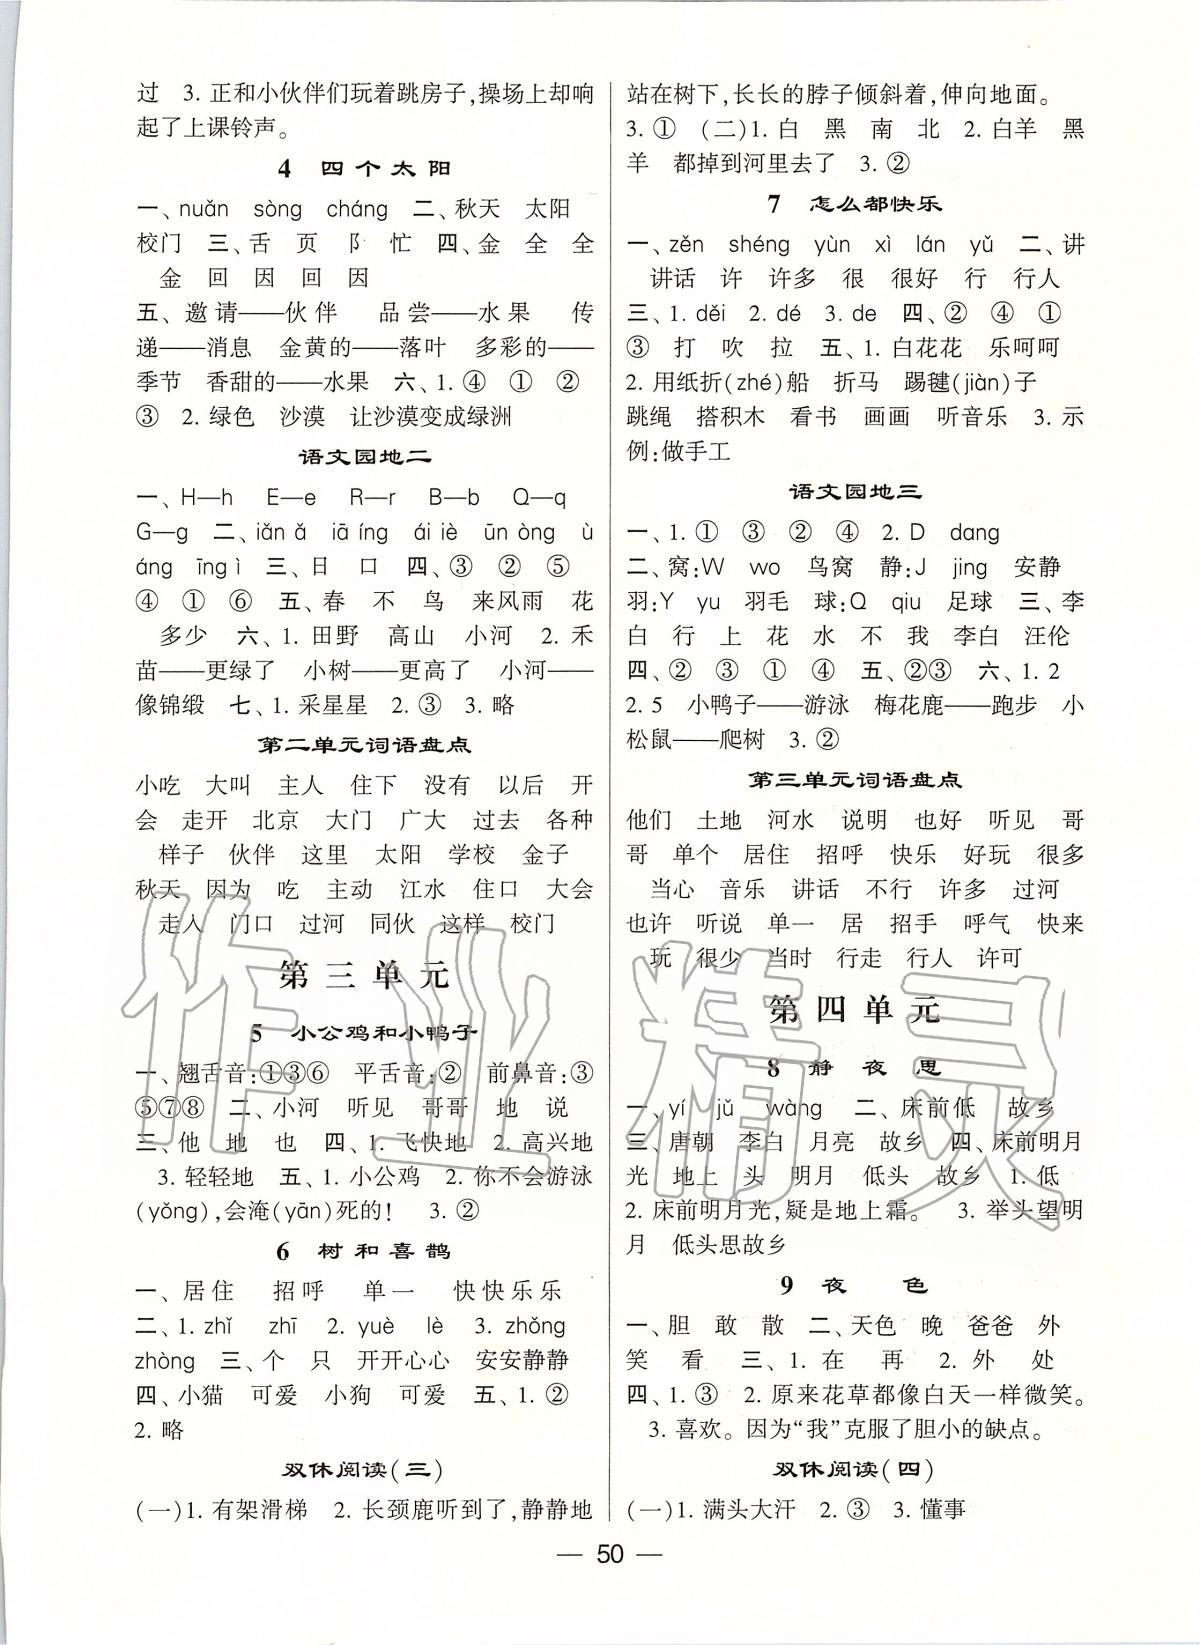 过　3. 正和小伙伴们玩着跳房子,操场上却响
起了上课铃声。
4　四个太阳
一、nuǎn　sòng　cháng　二、秋天　太阳
校门　三、舌　页　阝　忙　四、金　全　全
金　回　因　回　因
五、邀请——伙伴　品尝——水果　传
递——消息　金黄的——落叶　多彩的——
季节　香甜的——水果　六、1. ④　①　②
③　2. 绿色　沙漠　让沙漠变成绿洲
语文园地二
一、H—h　E—e　R—r　B—b　Q—q
G—g　二、iǎn ǎ　iā íng　ái iè　ūn òng　ù
áng　īng ì　三、日　口　四、③　②　⑤
④　①　⑥　五、春　不　鸟　来风雨　花
多少　六、1. 田野　高山　小河　2. 禾
苗——更绿了　小树——更高了　小河——
像锦缎　七、1. 采星星　2. ③　3. 略
第二单元词语盘点
小吃　大叫　主人　住下　没有　以后　开
会　走开　北京　大门　广大　过去　各种
样子　伙伴　这里　太阳　学校　金子
秋天　因为　吃　主动　江水　住口　大会
走入　门口　过河　同伙　这样　校门
第三单元
5　小公鸡和小鸭子
一、翘舌音:①③⑥　平舌音:②　前鼻音:③
⑤⑦⑧　二、小河　听见　哥哥　地　说
三、他　地　也　四、1. 飞快地　2. 高兴地
3. 轻轻地　五、1. 小公鸡　2. 你不会游泳
(yǒng),会淹(yān)死的!　3. ②
6　树和喜鹊
一、居住　招呼　单一　快快乐乐
二、1. zhǐ　zhī　2. yuè　lè　3. zhǒng
zhòng　三、个　只　开开心心　安安静静
四、小猫　可爱　小狗　可爱　五、1. ②
2. 略
双休阅读(三)
(一)1. 有架滑梯　2. 长颈鹿听到了,静静地
站在树下,长长的脖子倾斜着,伸向地面。
3. ①　(二)1. 白　黑　南　北　2. 白羊　黑
羊　都掉到河里去了　3. ②
7　怎么都快乐
一、zěn　shéng　yùn　xì　lán　yǔ　二、讲
讲话　许　许多　很　很好　行　行人
三、1. děi　2. dé　3. de　四、②　④　①
③　打　吹　拉　五、1. 白花花　乐呵呵
2. 用纸折(zhé)船　折马　踢毽(jiàn)子
跳绳　搭积木　看书　画画　听音乐　3. 示
例:做手工
语文园地三
一、1. ①　③　②　④　2. D　dang
二、窝:W　wo　鸟窝　静:J　jing　安静
羽:Y　yu　羽毛　球:Q　qiu　足球　三、李
白　行　上　花　水　不　我　李白　汪伦
四、②　③　①　④　五、②③　六、1. 2
2. 5　小鸭子——游泳　梅花鹿——跑步　小
松鼠——爬树　3. ②
第三单元词语盘点
他们　土地　河水　说明　也好　听见　哥
哥　单个　居住　招呼　快乐　好玩　很多
当心　音乐　讲话　不行　许多　过河
也许　听说　单一　居　招手　呼气　快来
玩　很少　当时　行走　行人　许可
第四单元
8　静夜思
一、yí　jǔ　wàng　二、床前低　故乡
三、唐朝　李白　月亮　故乡　四、床前明月
光　地上　头　明月　低头　故乡　1. 低
2. 床前明月光,疑是地上霜。　3. 举头望明
月　低头思故乡
9　夜　色
一、胆　敢　散　二、天色　晚　爸爸　外
笑　看　三、1. 在　再　2. 外　处
四、1. ③　2. 原来花草都像白天一样微笑。
3. 喜欢。因为“我”克服了胆小的缺点。
双休阅读(四)
(一)1. 满头大汗　2. ③　3. 懂事
— 50 —
作业精灵